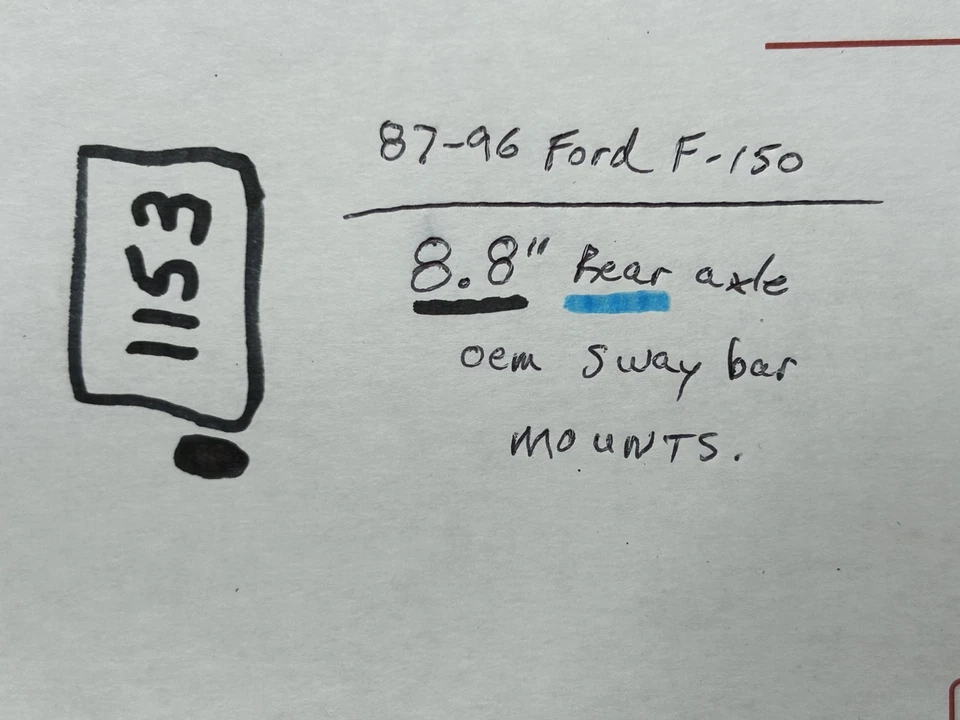 1153
87-96 Ford F-150
8.8" Rear axle
oem sway bar
MOUNTS.